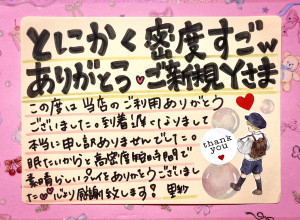 とにかく密度すごw
ありがとう♥ご新規Yさま
この度は当店のご利用ありがとう
ございました。到着遅くなりまして
本当に申し訳ありませんでした。
眠たいからと高密度短時間で
素晴らしいプレイをありがとうございまし
た♥心より感謝致します
thank
you